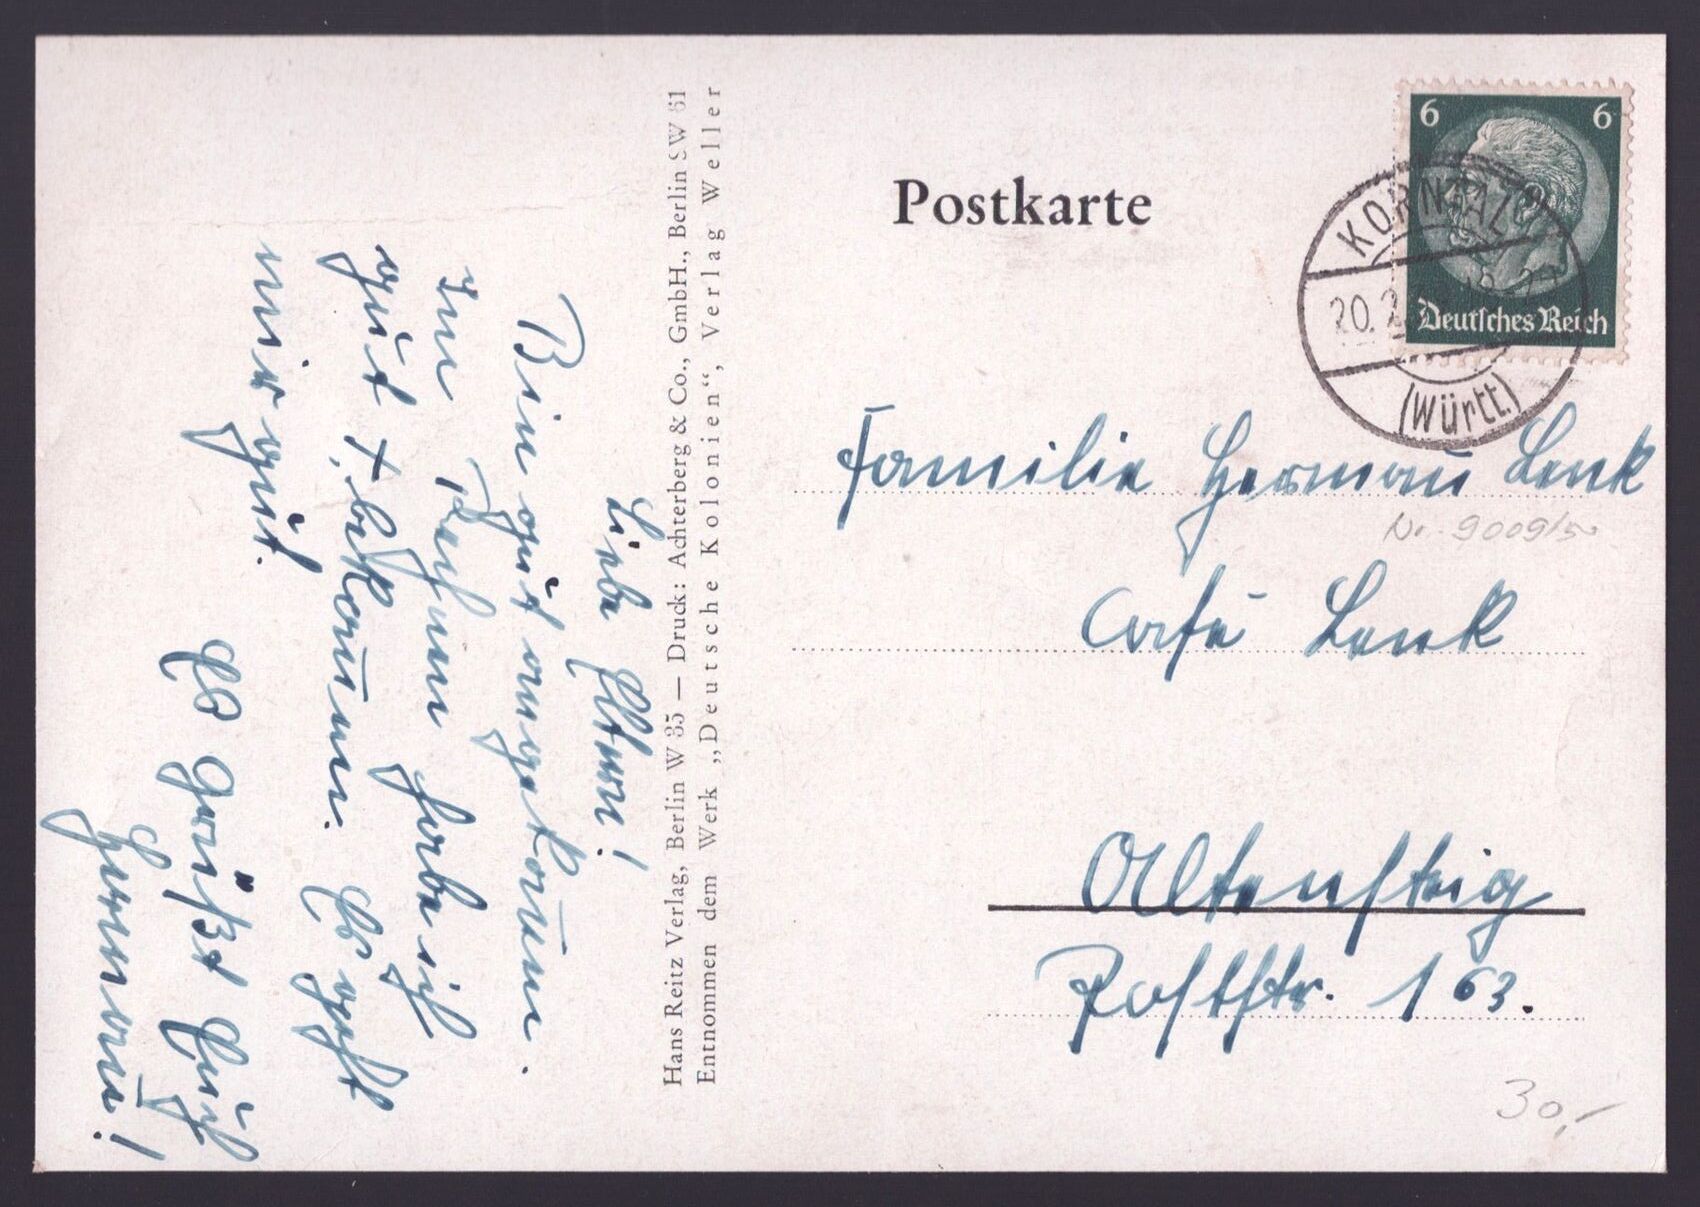 Postkarte
6 6
Deutsches Reich
KORNTAL
20.2
(Württ.)
Familie Hermann Lenk
Nr. 9009/50
Café Lenk
Altensteig
Poststr. 163.
30,-
Hans Reitz Verlag, Berlin W 35 — Druck: Achterberg & Co., GmbH., Berlin SW 61
Entnommen dem Werk „Deutsche Kolonien“, Verlag Weller
Liebe Eltern!
Bin gut angekom̅en.
Den habe ich
gut bekom̅en. Es geht
mir gut.
Es grüßt Euch
Herman̅!